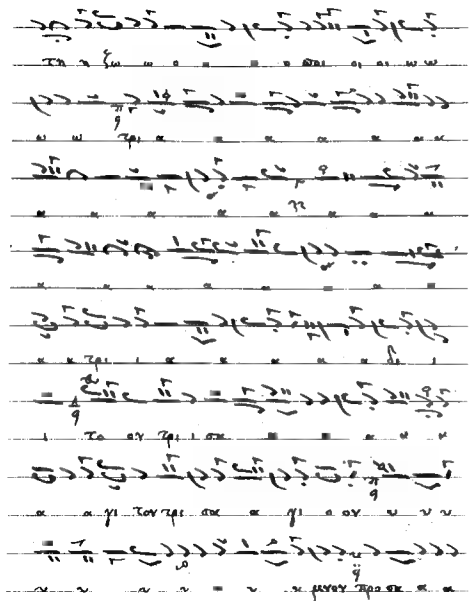 τη η ζω ω ο ο ποι οι οι ω ω
ω ω τρι α α α α α α α
α α α α α α α
α α α α α α
α α τρι ι α α α α α δι ι
ι το ον τρι ι σα α α α
α α γι τον τρι σα α γι ο ον υ υ υ
υ υ υ υ υ υ μνον προ σα α α